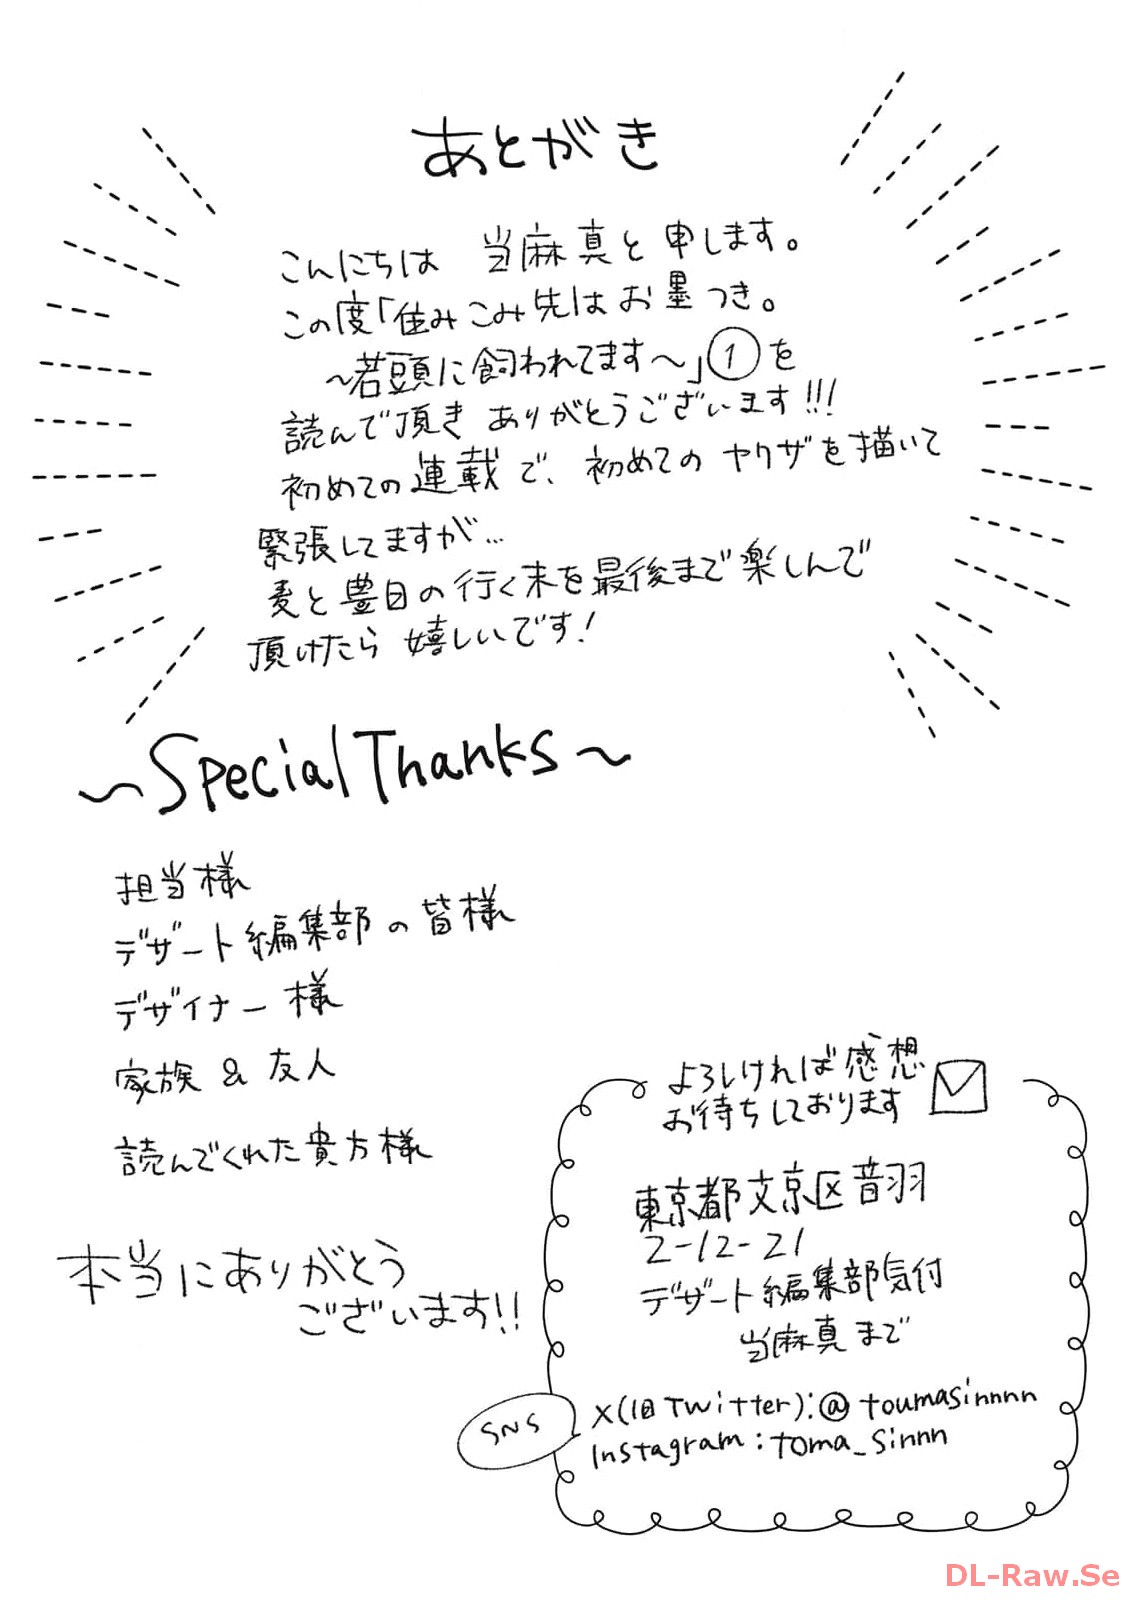 あとがき
こんにちは 当麻真と申します。
この度「住みこみ先はお墨つき。
～若頭に飼われてます～」①を
読んで頂き ありがとうございます!!!
初めての連載で、初めてのヤクザを描いて
緊張してますが…
麦と豊目の行く末を最後まで楽しんで
頂けたら嬉しいです!
～Special Thanks～
担当様
デザート編集部の皆様
デザイナー様
家族&友人
読んでくれた貴方様
本当にありがとう
ございます!!
よろしければ感想
お待ちしております
東京都文京区音羽
2-12-21
デザート編集部気付
当麻真まで
SNS
X(旧Twitter):@toumasinnnn
Instagram:toma_sinnn
DL-Raw.Se